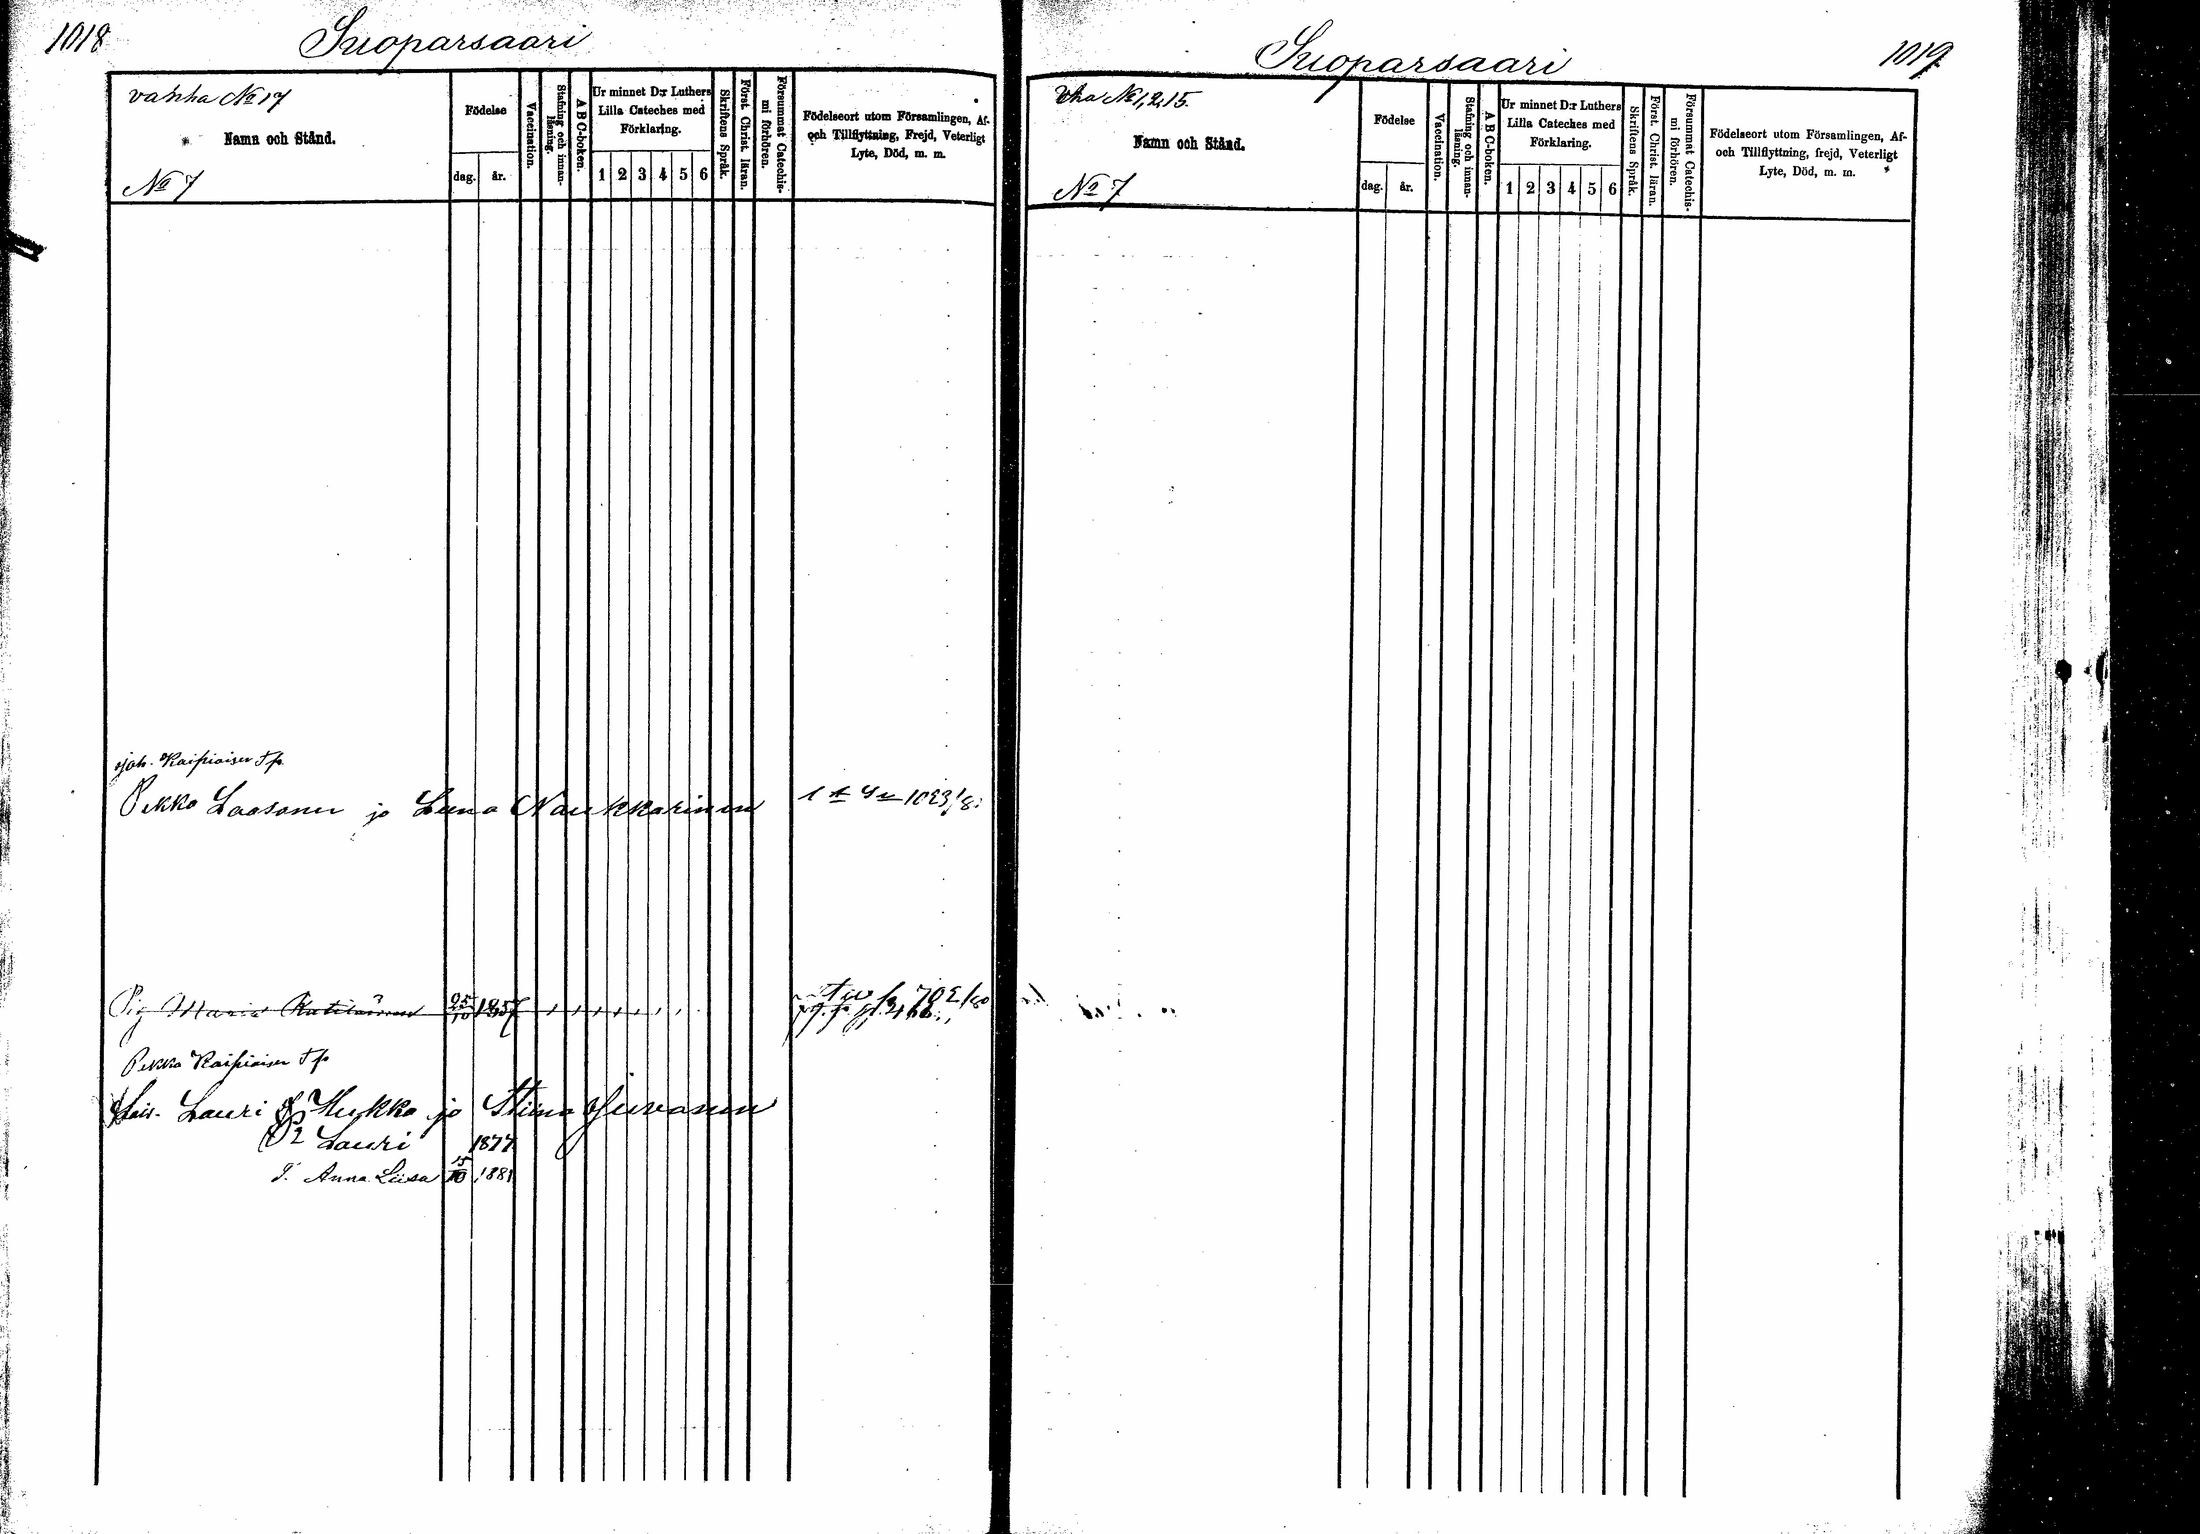 1018
Suoparsaari
vanha № 17
Namn och Stånd.
№ 7
Födelse
dag. år.
Vaccination.
Stafning och innan-läsning.
A B C-boken.
Ur minnet D:r Luthers Lilla Cateches med Förklaring.
1 2 3 4 5 6
Skriftens Språk.
Först. Christ. läran.
Försummat Catechis-mi förhören.
Födelseort utom Församlingen, Af-
och Tillflyttning, Frejd, Veterligt
Lyte, Död, m. m.
Joh. Kaipiaisen Tp.
Pekko Laasonen ja Leena Naukkarinen
Pig Maria 25/10 1857
Pekka Kaipiaisen Tp
Lois. Lauri Hukka ja Stiina
P2 Lauri 1877
T. Anna Liisa 15/10 1881
Suoparsaari
1019
Vha № 1,2,15.
Namn och Stånd.
№ 7
Födelse
dag. år.
Vaccination.
Stafning och innan-läsning.
A B C-boken.
Ur minnet D:r Luthers Lilla Cateches med Förklaring.
1 2 3 4 5 6
Skriftens Språk.
Först. Christ. läran.
Försummat Catechis-mi förhören.
Födelseort utom Församlingen, Af-
och Tillflyttning, frejd, Veterligt
Lyte, Död, m. m.